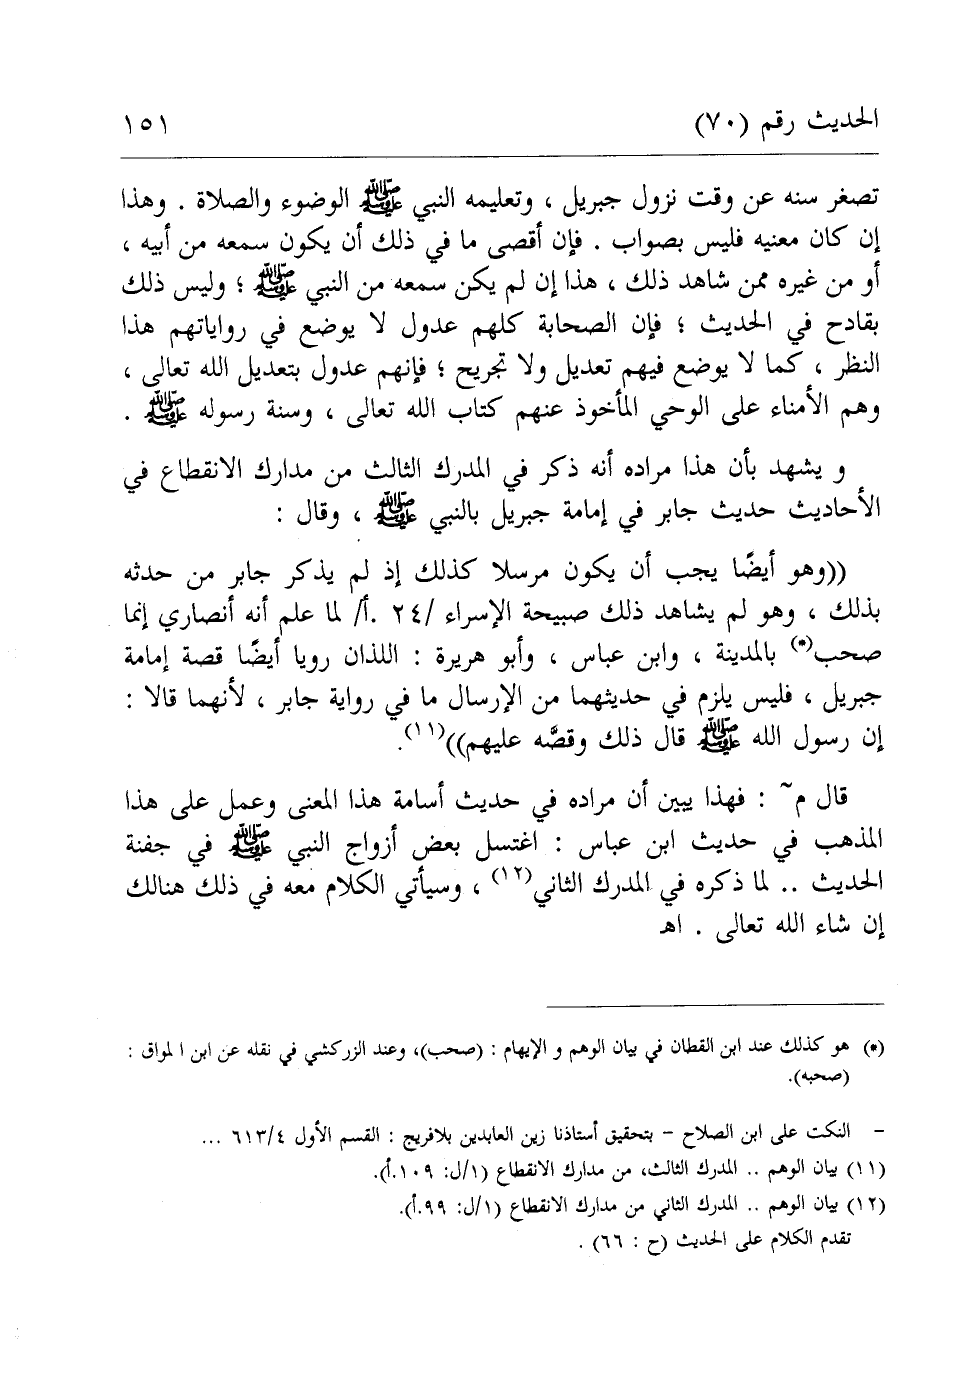 الحديث رقم (٧٠) ١٥١
تصغر سنه عن وقت نزول جبريل ، وتعليمه النبي ﷺ الوضوء والصلاة . وهذا
إن كان معنيه فليس بصواب . فإن أقصى ما في ذلك أن يكون سمعه من أبيه ،
أو من غيره ممن شاهد ذلك ، هذا إن لم يكن سمعه من النبي ﷺ ؛ وليس ذلك
بقادح في الحديث ؛ فإن الصحابة كلهم عدول لا يوضع في رواياتهم هذا
النظر ، كما لا يوضع فيهم تعديل ولا تجريح ؛ فإنهم عدول بتعديل الله تعالى ،
وهم الأمناء على الوحي المأخوذ عنهم كتاب الله تعالى ، وسنة رسوله ﷺ .
و يشهد بأن هذا مراده أنه ذكر في المدرك الثالث من مدارك الانقطاع في
الأحاديث حديث جابر في إمامة جبريل بالنبي ﷺ ، وقال :
((وهو أيضًا يجب أن يكون مرسلا كذلك إذ لم يذكر جابر من حدثه
بذلك ، وهو لم يشاهد ذلك صبيحة الإسراء /٢٤ .أ/ لما علم أنه أنصاري إنما
صحب(*) بالمدينة ، وابن عباس ، وأبو هريرة : اللذان رويا أيضًا قصة إمامة
جبريل ، فليس يلزم في حديثهما من الإرسال ما في رواية جابر ، لأنهما قالا :
إن رسول الله ﷺ قال ذلك وقصَّه عليهم))(١١).
قال م~ : فهذا يبين أن مراده في حديث أسامة هذا المعنى وعمل على هذا
المذهب في حديث ابن عباس : اغتسل بعض أزواج النبي ﷺ في جفنة
الحديث .. لما ذكره في المدرك الثاني(١٢) ، وسيأتي الكلام معه في ذلك هنالك
إن شاء الله تعالى . اهـ
(*) هو كذلك عند ابن القطان في بيان الوهم و الإيهام : (صحب)، وعند الزركشي في نقله عن ابن ا لمواق :
(صحبه).
- النكت على ابن الصلاح - بتحقيق أستاذنا زين العابدين بلافريج : القسم الأول ٦١٣/٤ ...
(١١) بيان الوهم .. المدرك الثالث، من مدارك الانقطاع (١/ل: ١٠٩.أ).
(١٢) بيان الوهم .. المدرك الثاني من مدارك الانقطاع (١/ل: ٩٩.أ).
تقدم الكلام على الحديث (ح : ٦٦) .